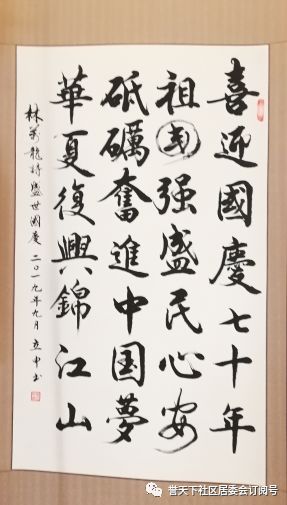 喜迎國慶七十年
祖國强盛民心安
砥礪奮進中国夢
華夏復興錦江山
林萬龍詩盛世國慶 二〇一九年九月 立中书
誉天下社区居委会订阅号